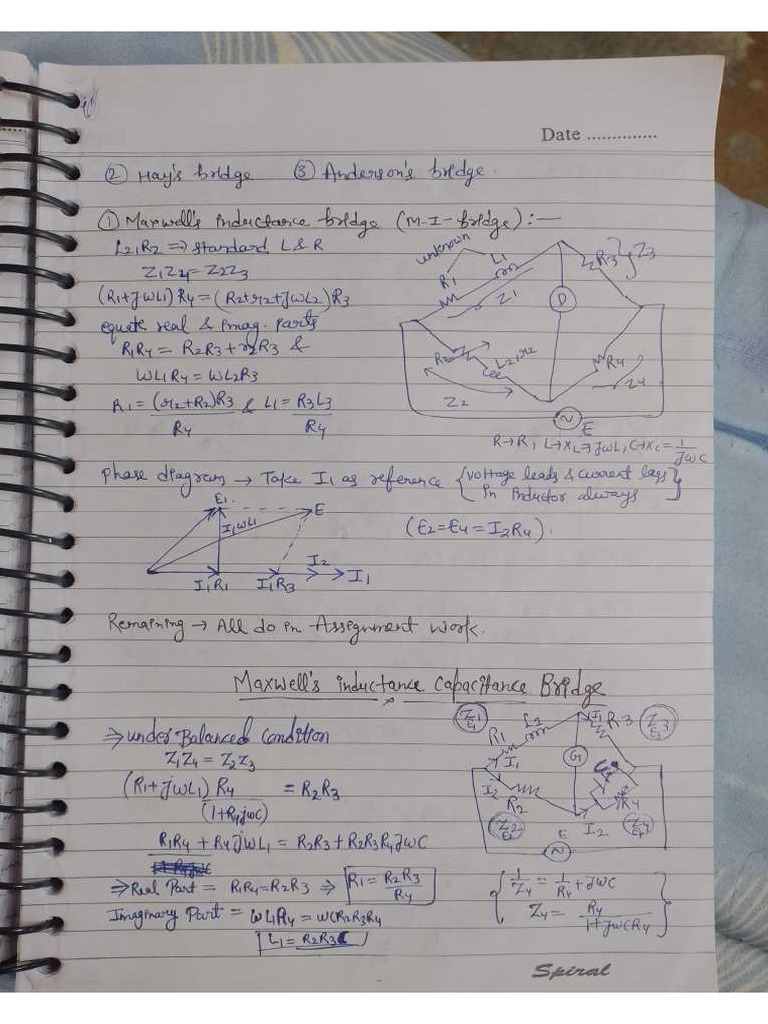 Date ..............
② Hay's bridge ③ Anderson's bridge.
① Maxwell's inductance bridge (M-I-bridge) :—
L2, R2 ⇒ standard L & R
Z1Z4 = Z2Z3
(R1+jωL1) R4 = (R2+r2+jωL2) R3
equate real & imag. parts
R1R4 = R2R3 + r2R3 &
ωL1R4 = ωL2R3
R1 = (r2+R2)R3 / R4 & L1 = R3L3 / R4
unknown
R1 L1
Z1
R3 } Z3
D
R2 L2, r2
Z2
R4
Z4
E
R→R, L→XL→jωL, C→XC = 1/jωC
Phase diagram → Take I1 as reference { voltage leads & current lags
in inductor always }
E1 E
I1ωL1
I1R1 I1R3 I2 I1
(E2=E4 = I2R4).
Remaining → All do in Assignment work.
Maxwell's inductance Capacitance Bridge
⇒ under Balanced Condition
Z1Z4 = Z2Z3
(R1+jωL1) R4 / (1+R4jωC) = R2R3
R1R4 + R4jωL1 = R2R3 + R2R3R4jωC
⇒ Real Part = R1R4 = R2R3 ⇒ R1 = R2R3 / R4
Imaginary Part = ωL1R4 = ωCR2R3R4
L1 = R2R3C
Z1 E1
R1 L1
I1
I1 R3
Z3 E3
G
I2
R2
Z2 E2
I2
R4
Z4 E4
E
{ 1/Z4 = 1/R4 + jωC
Z4 = R4 / 1+jωCR4 }
Spiral